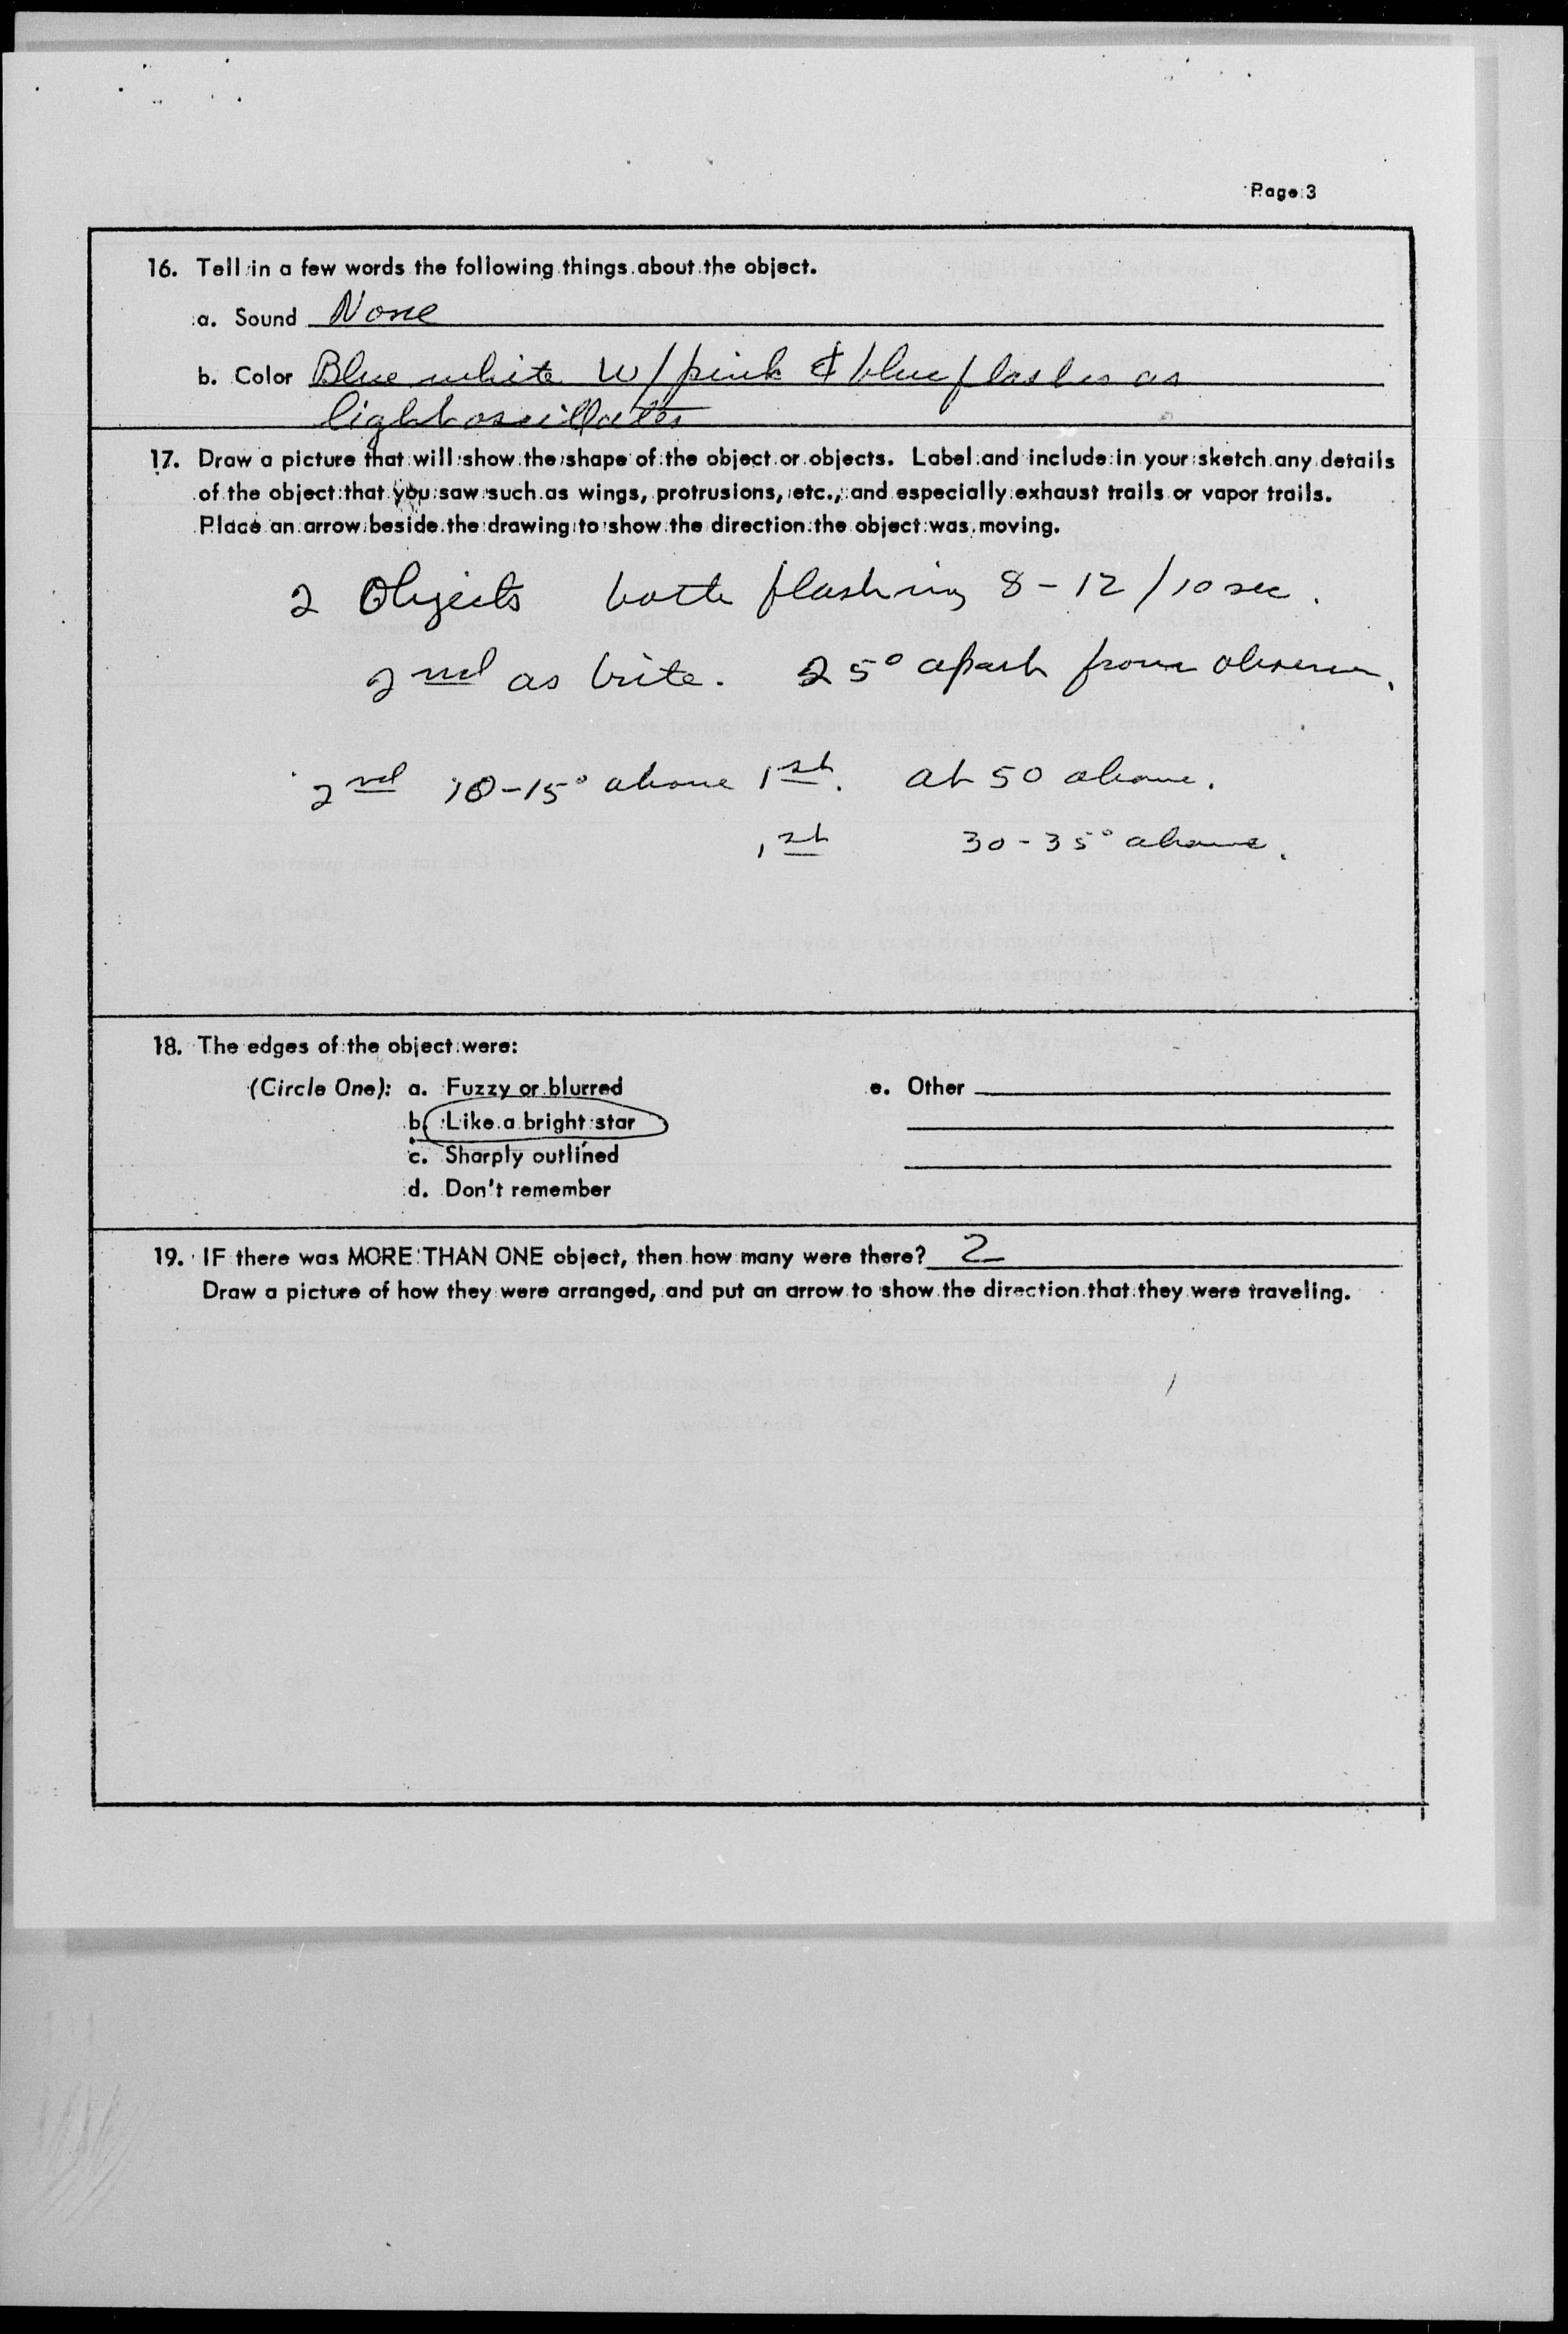 Page 3
16. Tell in a few words the following things about the object.
a. Sound None
b. Color Blue white w/ pink & blue flashes as
light oscillates
17. Draw a picture that will show the shape of the object or objects. Label and include in your sketch any details
of the object that you saw such as wings, protrusions, etc., and especially exhaust trails or vapor trails.
Place an arrow beside the drawing to show the direction the object was moving.
2 Objects both flashing 8-12/10 sec.
2nd as brite. 25° apart from observer.
2nd 10-15° above 1st. at 50 above.
1st 30-35° above.
18. The edges of the object were:
(Circle One): a. Fuzzy or blurred e. Other
b. Like a bright star
c. Sharply outlined
d. Don't remember
19. IF there was MORE THAN ONE object, then how many were there? 2
Draw a picture of how they were arranged, and put an arrow to show the direction that they were traveling.